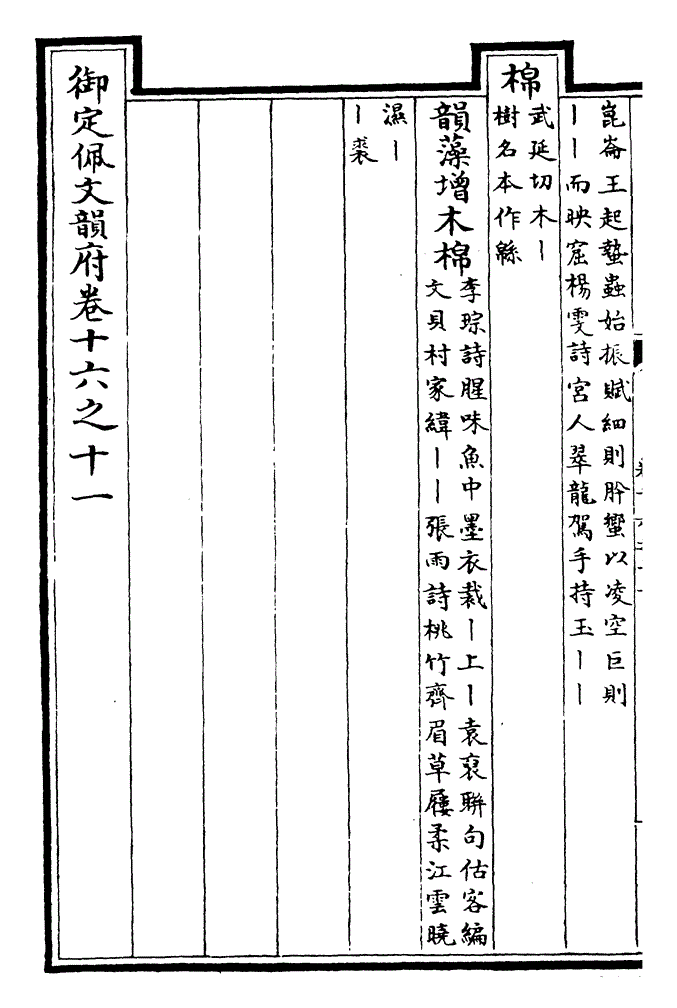 崑崙王起蟄蟲始振賦細則肸蠁以凌空巨則
丨丨而映窟楊雯詩宮人翠龍駕手持玉丨丨
棉
武延切木丨
樹名本作緜
韻藻增木棉
李琮詩腥味魚中墨衣裁丨上丨袁裒聨句估客編
文貝村家緯丨丨張雨詩桃竹齊眉草屨柔江雲曉
濕丨
丨裘
御定佩文韻府卷十六之十一